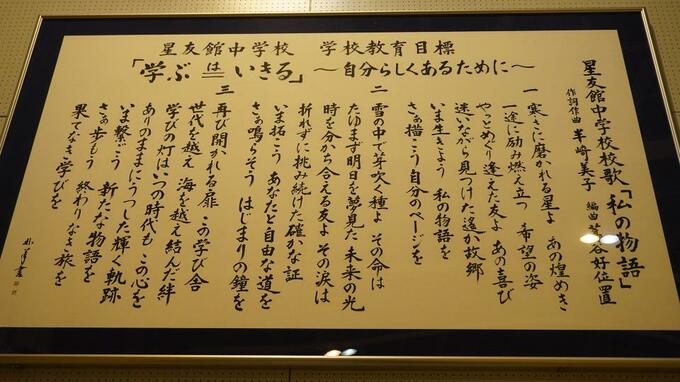 星友館中学校　学校教育目標
「学ぶ は いきる」 ～自分らしくあるために～
星友館中学校校歌「私の物語」
作詞作曲 半﨑美子 編曲 芳谷好位置
一 寒さに磨かれる星よ あの煌めき
一途に励み燃え立つ 希望の姿
やっとめぐり逢えた友よ あの喜び
迷いながら見つけた遙か故郷
いま生きよう 私の物語を
さぁ描こう自分のページを
二 雪の中で芽吹く種よ その命は
たゆまず明日を夢見た 未来の光
時を分かち合える友よ その涙は
折れずに挑み続けた確かな証
いま拓こう あなたと自由な道を
さぁ鳴らそう はじまりの鐘を
三 再び開かれる扉 この学び舎
世代を越え 海を越え結んだ絆
学びの灯はいつの時代も この心を
ありのままにうつした輝く軌跡
いま繋ごう 新たな物語を
さぁ歩もう 終わりなき旅を
果てなき学びを